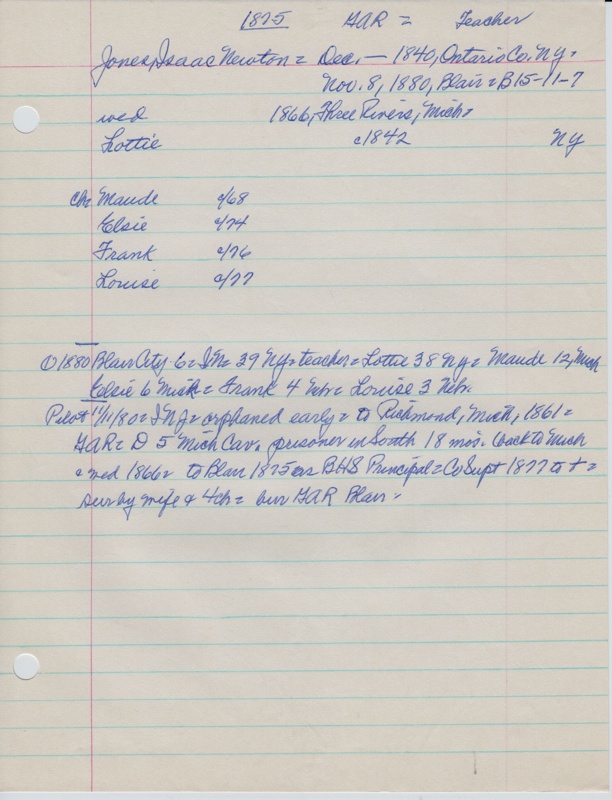 1875 GAR = Teacher
Jones, Isaac Newton = Dec. — 1840, Ontario Co. Ny =
Nov. 8, 1880, Blair = B15-11-7
wed 1866, Three Rivers, Mich =
Lottie c1842 Ny
ch = Maude c/68
Elsie c/74
Frank c/76
Louise c/77
1880 Blair City 6 = IN = 39 Ny = teacher = Lottie 38 Ny = Maude 12, Mich
Elsie 6 Mich = Frank 4 Neb = Louise 3 Nebr.
Pilot 11/11/80 = I N J = orphaned early = to Richmond, Mich, 1861 =
GAR = D 5 Mich Cav. prisoner in South 18 mos. back to Mich
& wed 1866 = to Blair 1875 as BHS Principal = Co Supt 1877 to + =
sur by wife & 4 ch = bur GAR Blair =